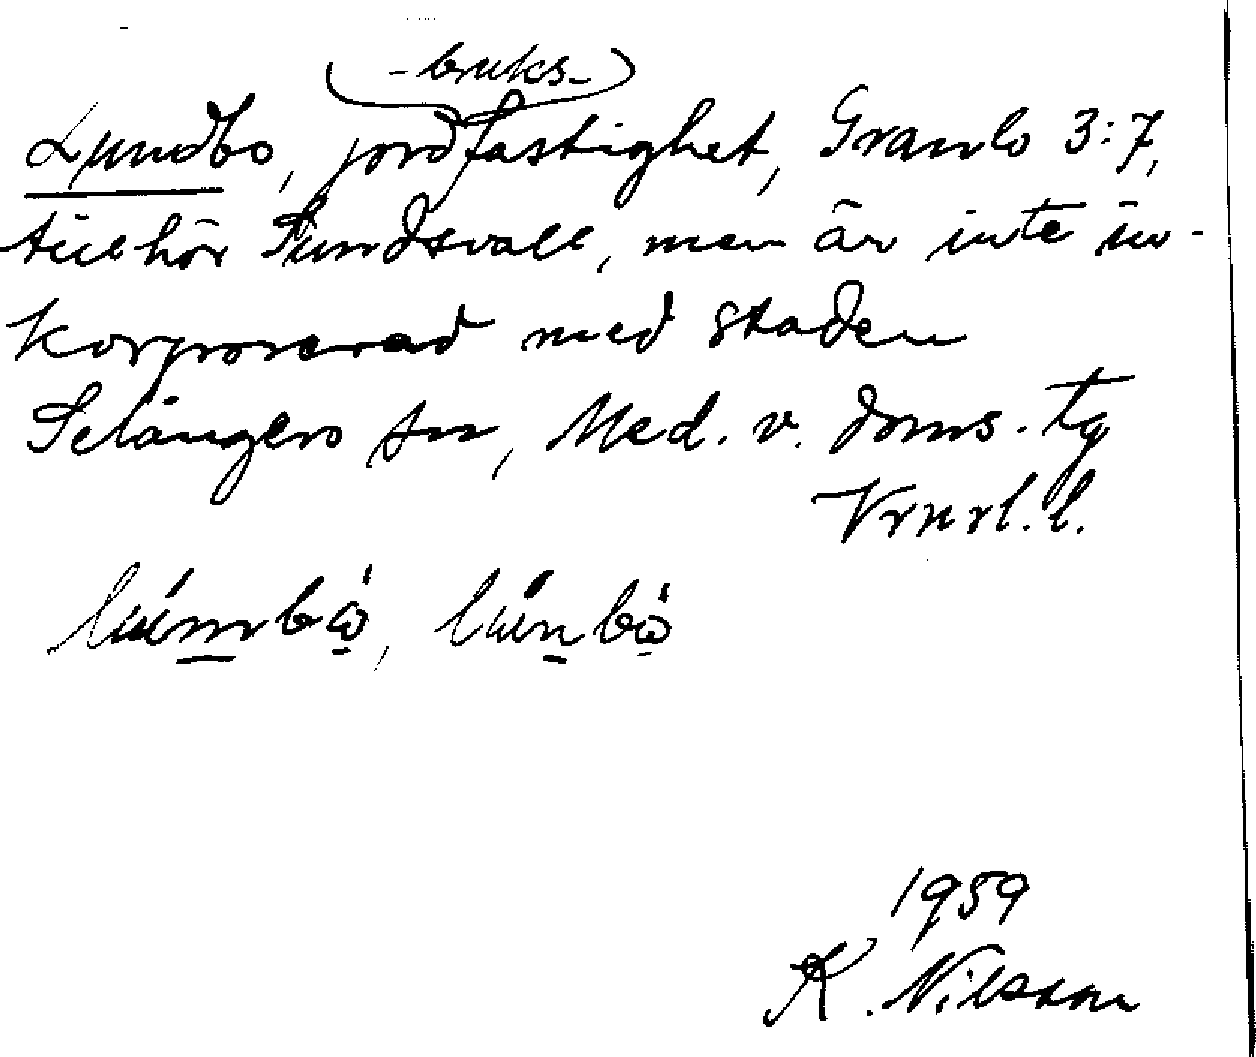 -bruks-
Lundbo, jordfastighet, Granlo 3:7,
tillhör Sundsvall, men är inte in-
korporerad med staden
Selångers sn, Med. v. doms. tg
Vrnrl. l.

1959
K. Nilsson